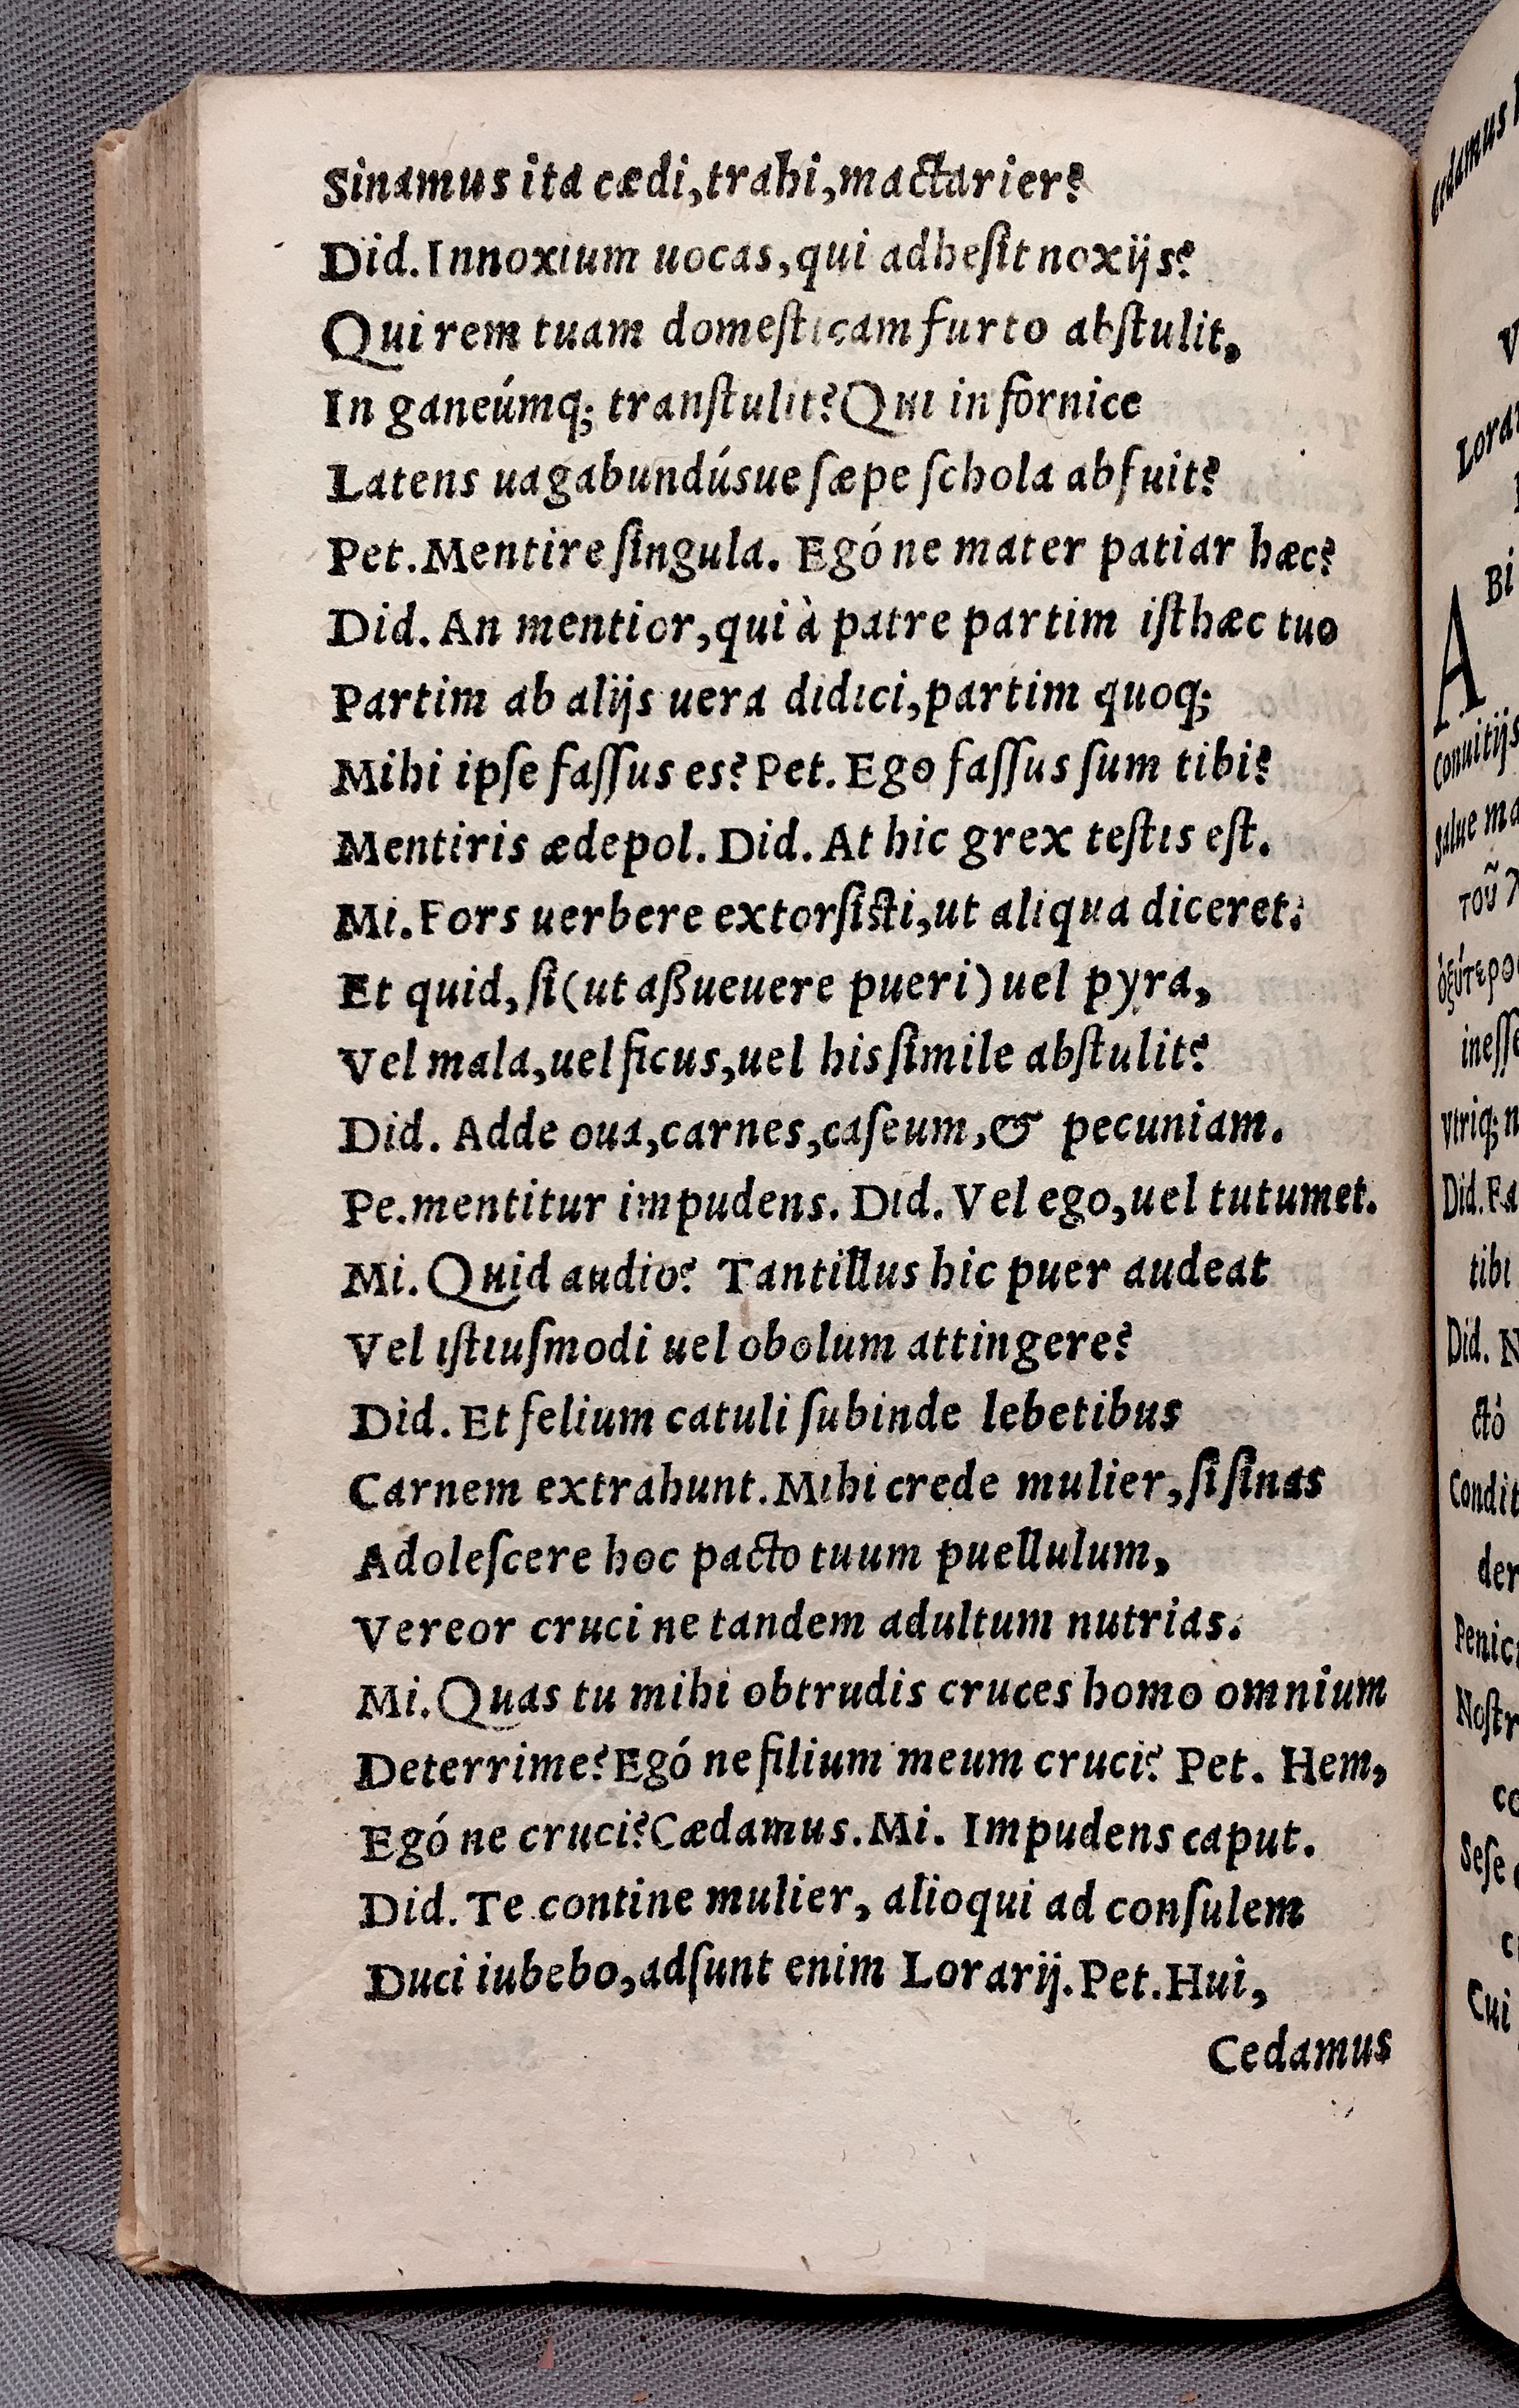 Sinamus ita cædi, trahi, mactarier?
Did. Innoxium uocas, qui adhesit noxijs?
Qui rem tuam domesticam furto abstulit,
In ganeúmq; transtulit? Qui in fornice
Latens uagabundúsue sæpe schola abfuit?
Pet. Mentire singula. Egóne mater patiar hæc?
Did. An mentior, qui à patre partim isthæc tuo
Partim ab alijs uera didici, partim quoq;
Mihi ipse fassus es? Pet. Ego fassus sum tibi?
Mentiris ædepol. Did. At hic grex testis est.
Mi. Fors uerbere extorsisti, ut aliqua diceret:
Et quid, si (ut aßueuere pueri) uel pyra,
Vel mala, uel ficus, uel his simile abstulit?
Did. Adde oua, carnes, caseum, & pecuniam.
Pe. mentitur impudens. Did. Vel ego, uel tutumet.
Mi. Quid audio? Tantillus hic puer audeat
Vel istiusmodi uel obolum attingere?
Did. Et felium catuli subinde lebetibus
Carnem extrahunt. Mihi crede mulier, si sinas
Adolescere hoc pacto tuum puellulum,
Vereor cruci ne tandem adultum nutrias.
Mi. Quas tu mihi obtrudis cruces homo omnium
Deterrime? Egó ne filium meum cruci? Pet. Hem,
Egó ne cruci? Cædamus. Mi. Impudens caput.
Did. Te contine mulier, alioqui ad consulem
Duci iubebo, adsunt enim Lorarij. Pet. Hui,
Cedamus